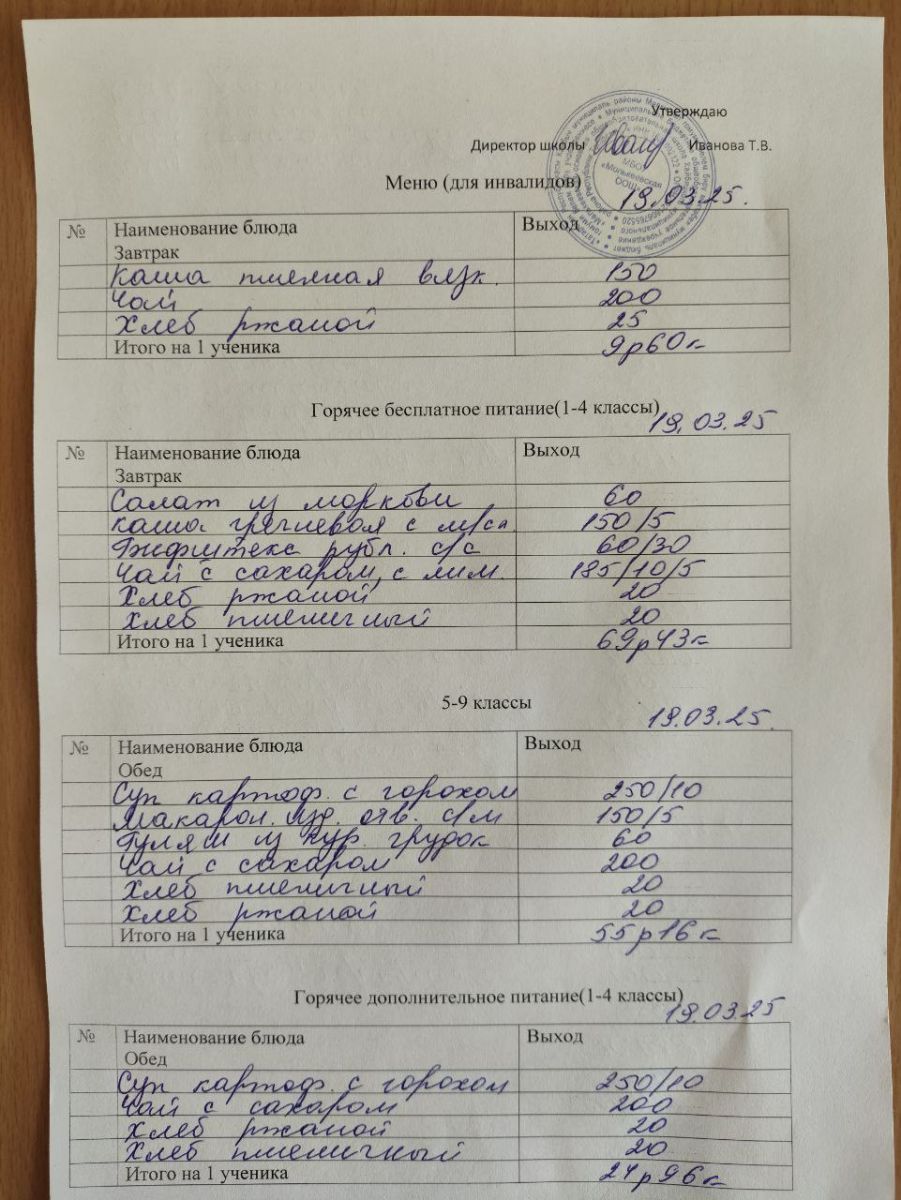 Утверждаю
Директор школы Иванова Т.В.
МБОУ
«Молькеевская
ООШ»
Меню (для инвалидов)
19.03.25.
№ Наименование блюда Выход
Завтрак
Каша пшенная вязк. 150
Чай 200
Хлеб ржаной 25
Итого на 1 ученика 9р60к
Горячее бесплатное питание(1-4 классы)
19.03.25
№ Наименование блюда Выход
Завтрак
Салат из моркови 60
Каша гречневая с м/сл 150/5
Бифштекс рубл. с/с 60/30
Чай с сахаром, с лим. 185/10/5
Хлеб ржаной 20
Хлеб пшеничный 20
Итого на 1 ученика 69р43к
5-9 классы
19.03.25
№ Наименование блюда Выход
Обед
Суп картоф. с горохом 250/10
Макарон. изд. отв. с/м 150/5
Гуляш из кур. грудок 60
Чай с сахаром 200
Хлеб пшеничный 20
Хлеб ржаной 20
Итого на 1 ученика 55р16к
Горячее дополнительное питание(1-4 классы)
19.03.25
№ Наименование блюда Выход
Обед
Суп картоф. с горохом 250/10
Чай с сахаром 200
Хлеб ржаной 20
Хлеб пшеничный 20
Итого на 1 ученика 24р96к